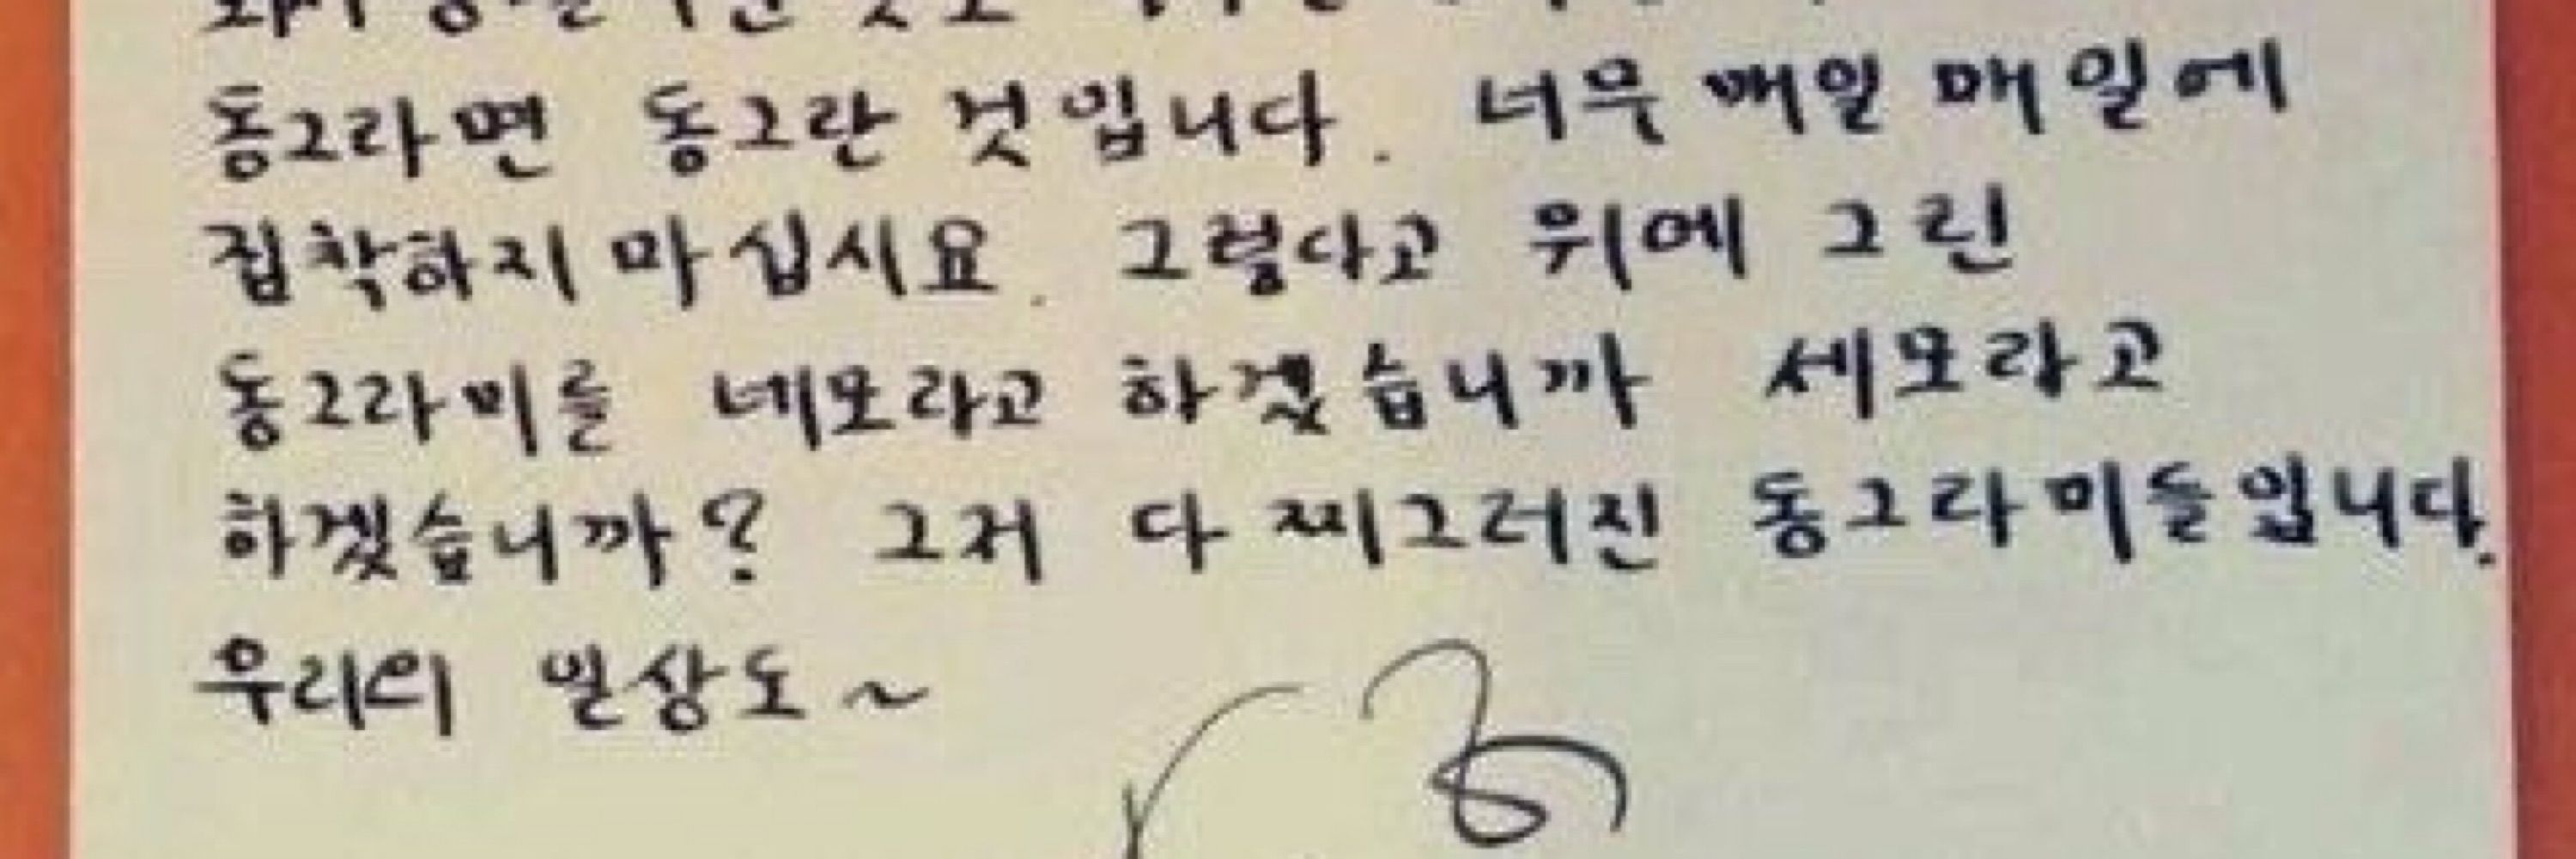 동그라면 동그란 것입니다. 너무 매일 매일에
집착하지 마십시요. 그렇다고 위에 그린
동그라미를 네모라고 하겠습니까 세모라고
하겠습니까? 그저 다 찌그러진 동그라미들입니다.
우리의 일상도~